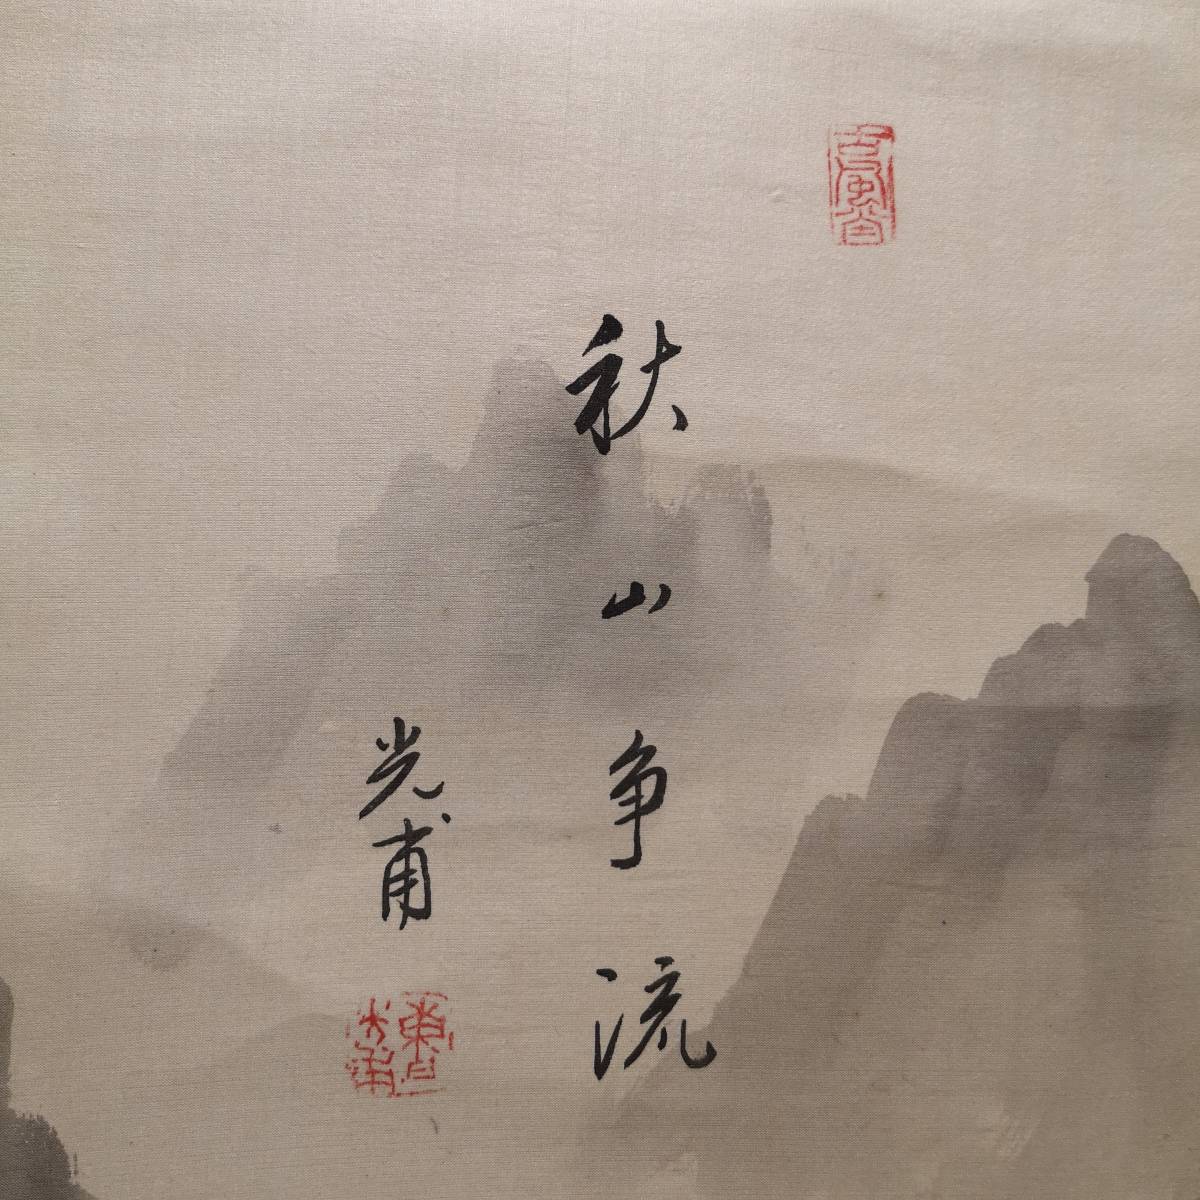 秋山争流
光甫